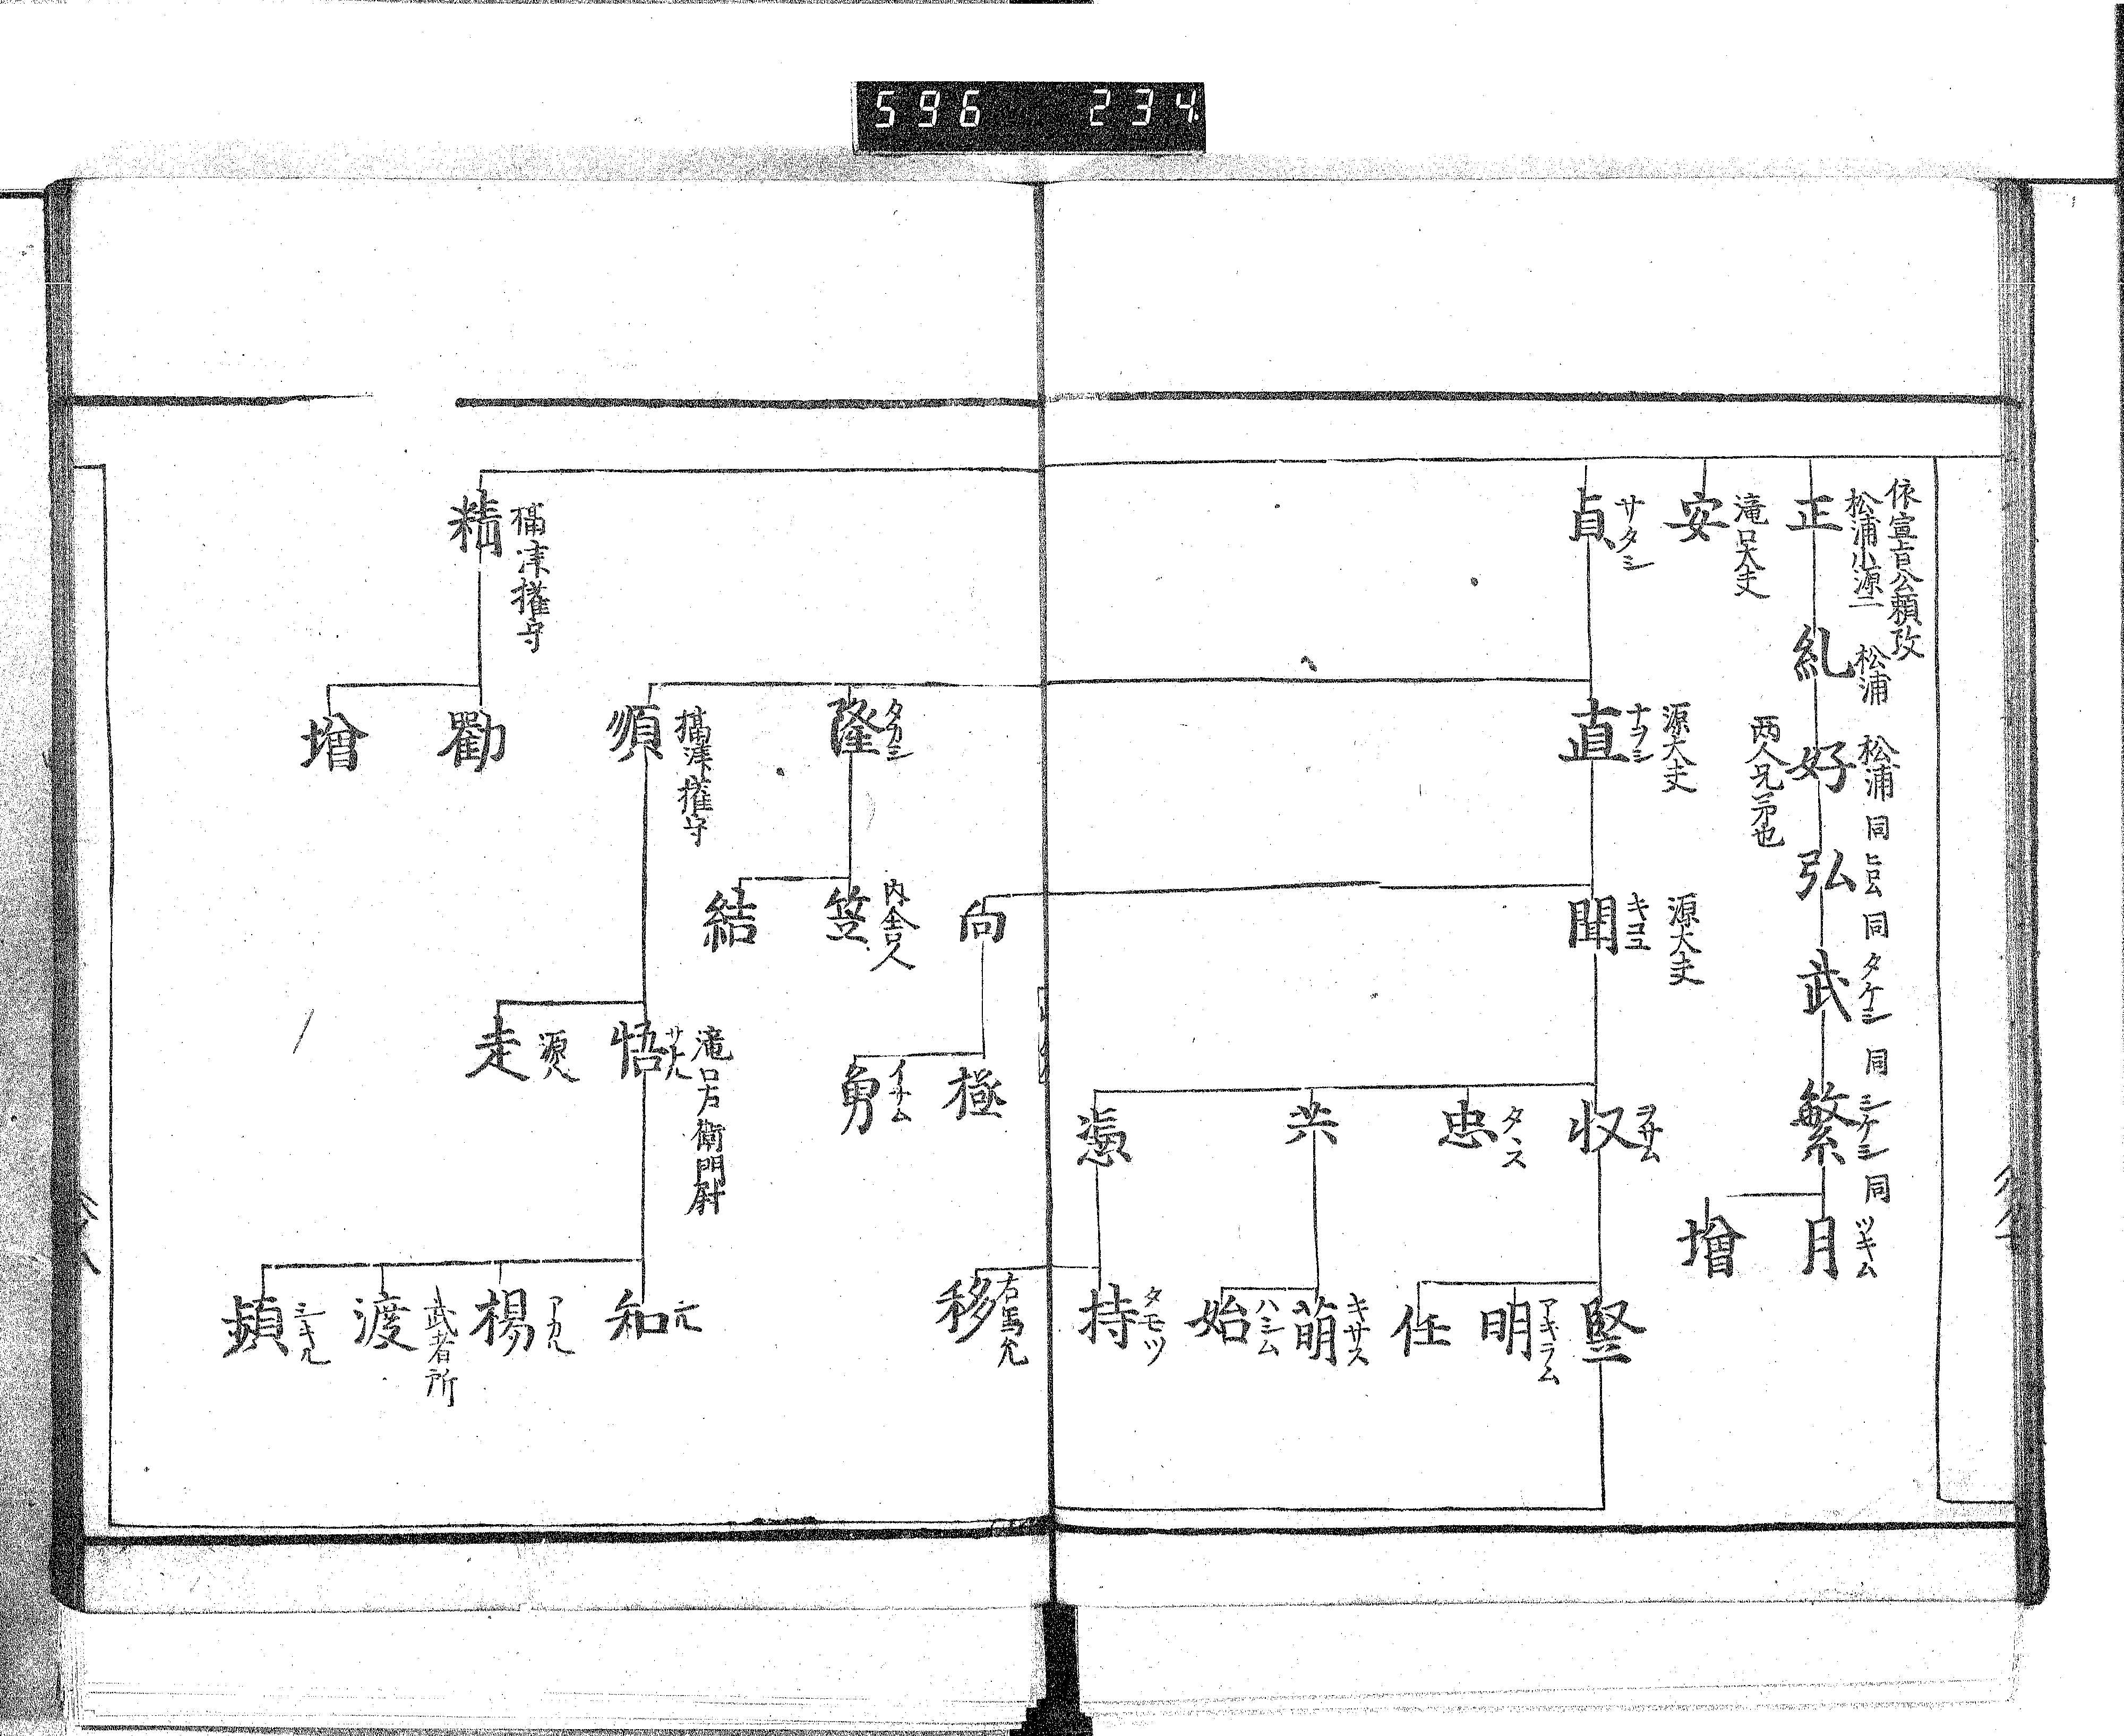 596 234
依宣旨公頼改
松浦小源二
正
松浦
糺
松浦
好
両人兄弟也
同
弘
ヒロム
同
武
タケシ
同
繁
シケシ
同
月
ツキム
増
滝口大夫
安
サタシ
貞
源大夫
ナフシ
直
源大夫
キコユ
聞
ヲサム
収
竪
アキラム
明
任
タヽス
忠
共
キサス
萌
ハシム
始
憑
タモツ
持
右馬允
移
向
極
イサム
勇
タカシ
隆
内舎人
笠
結
摂津権守
順
滝口左衛門尉
サトル
悟
知
アカル
楊
武者所
渡
頻
走
摂津権守
精
勸
増